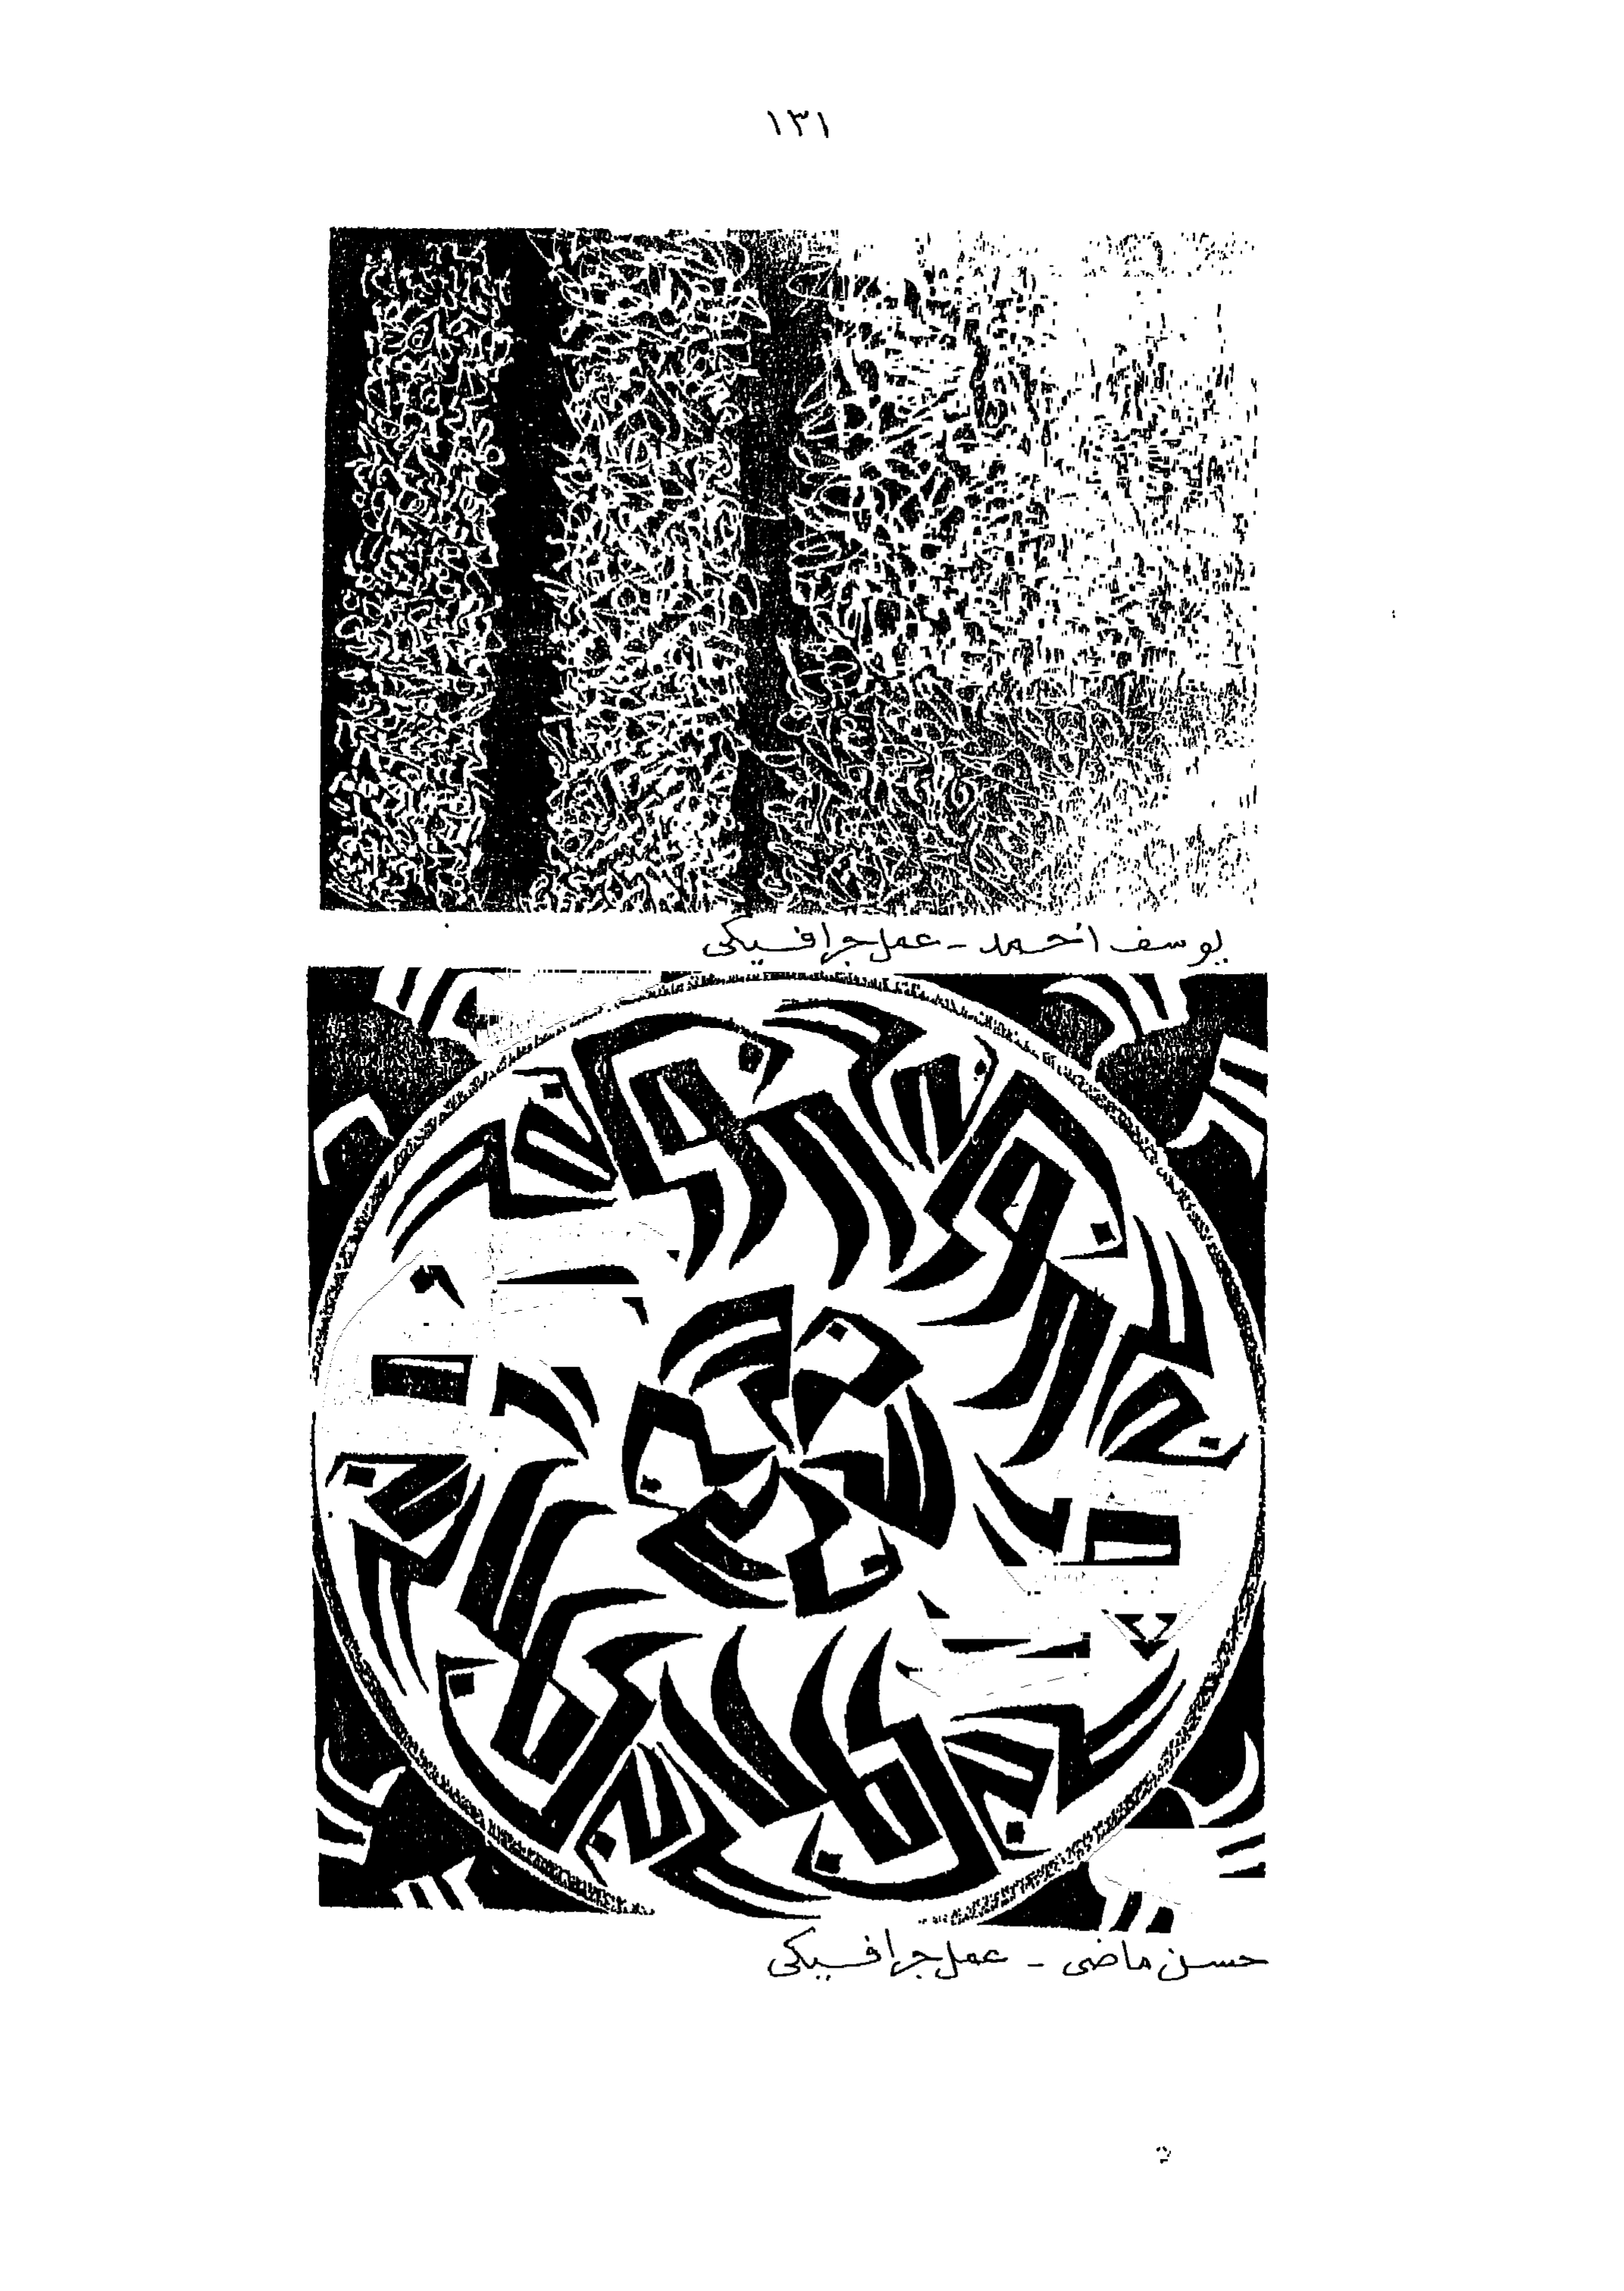 ١٣١
يوسف أحمد - عمل جرافيكي
حسن ماضي - عمل جرافيكي